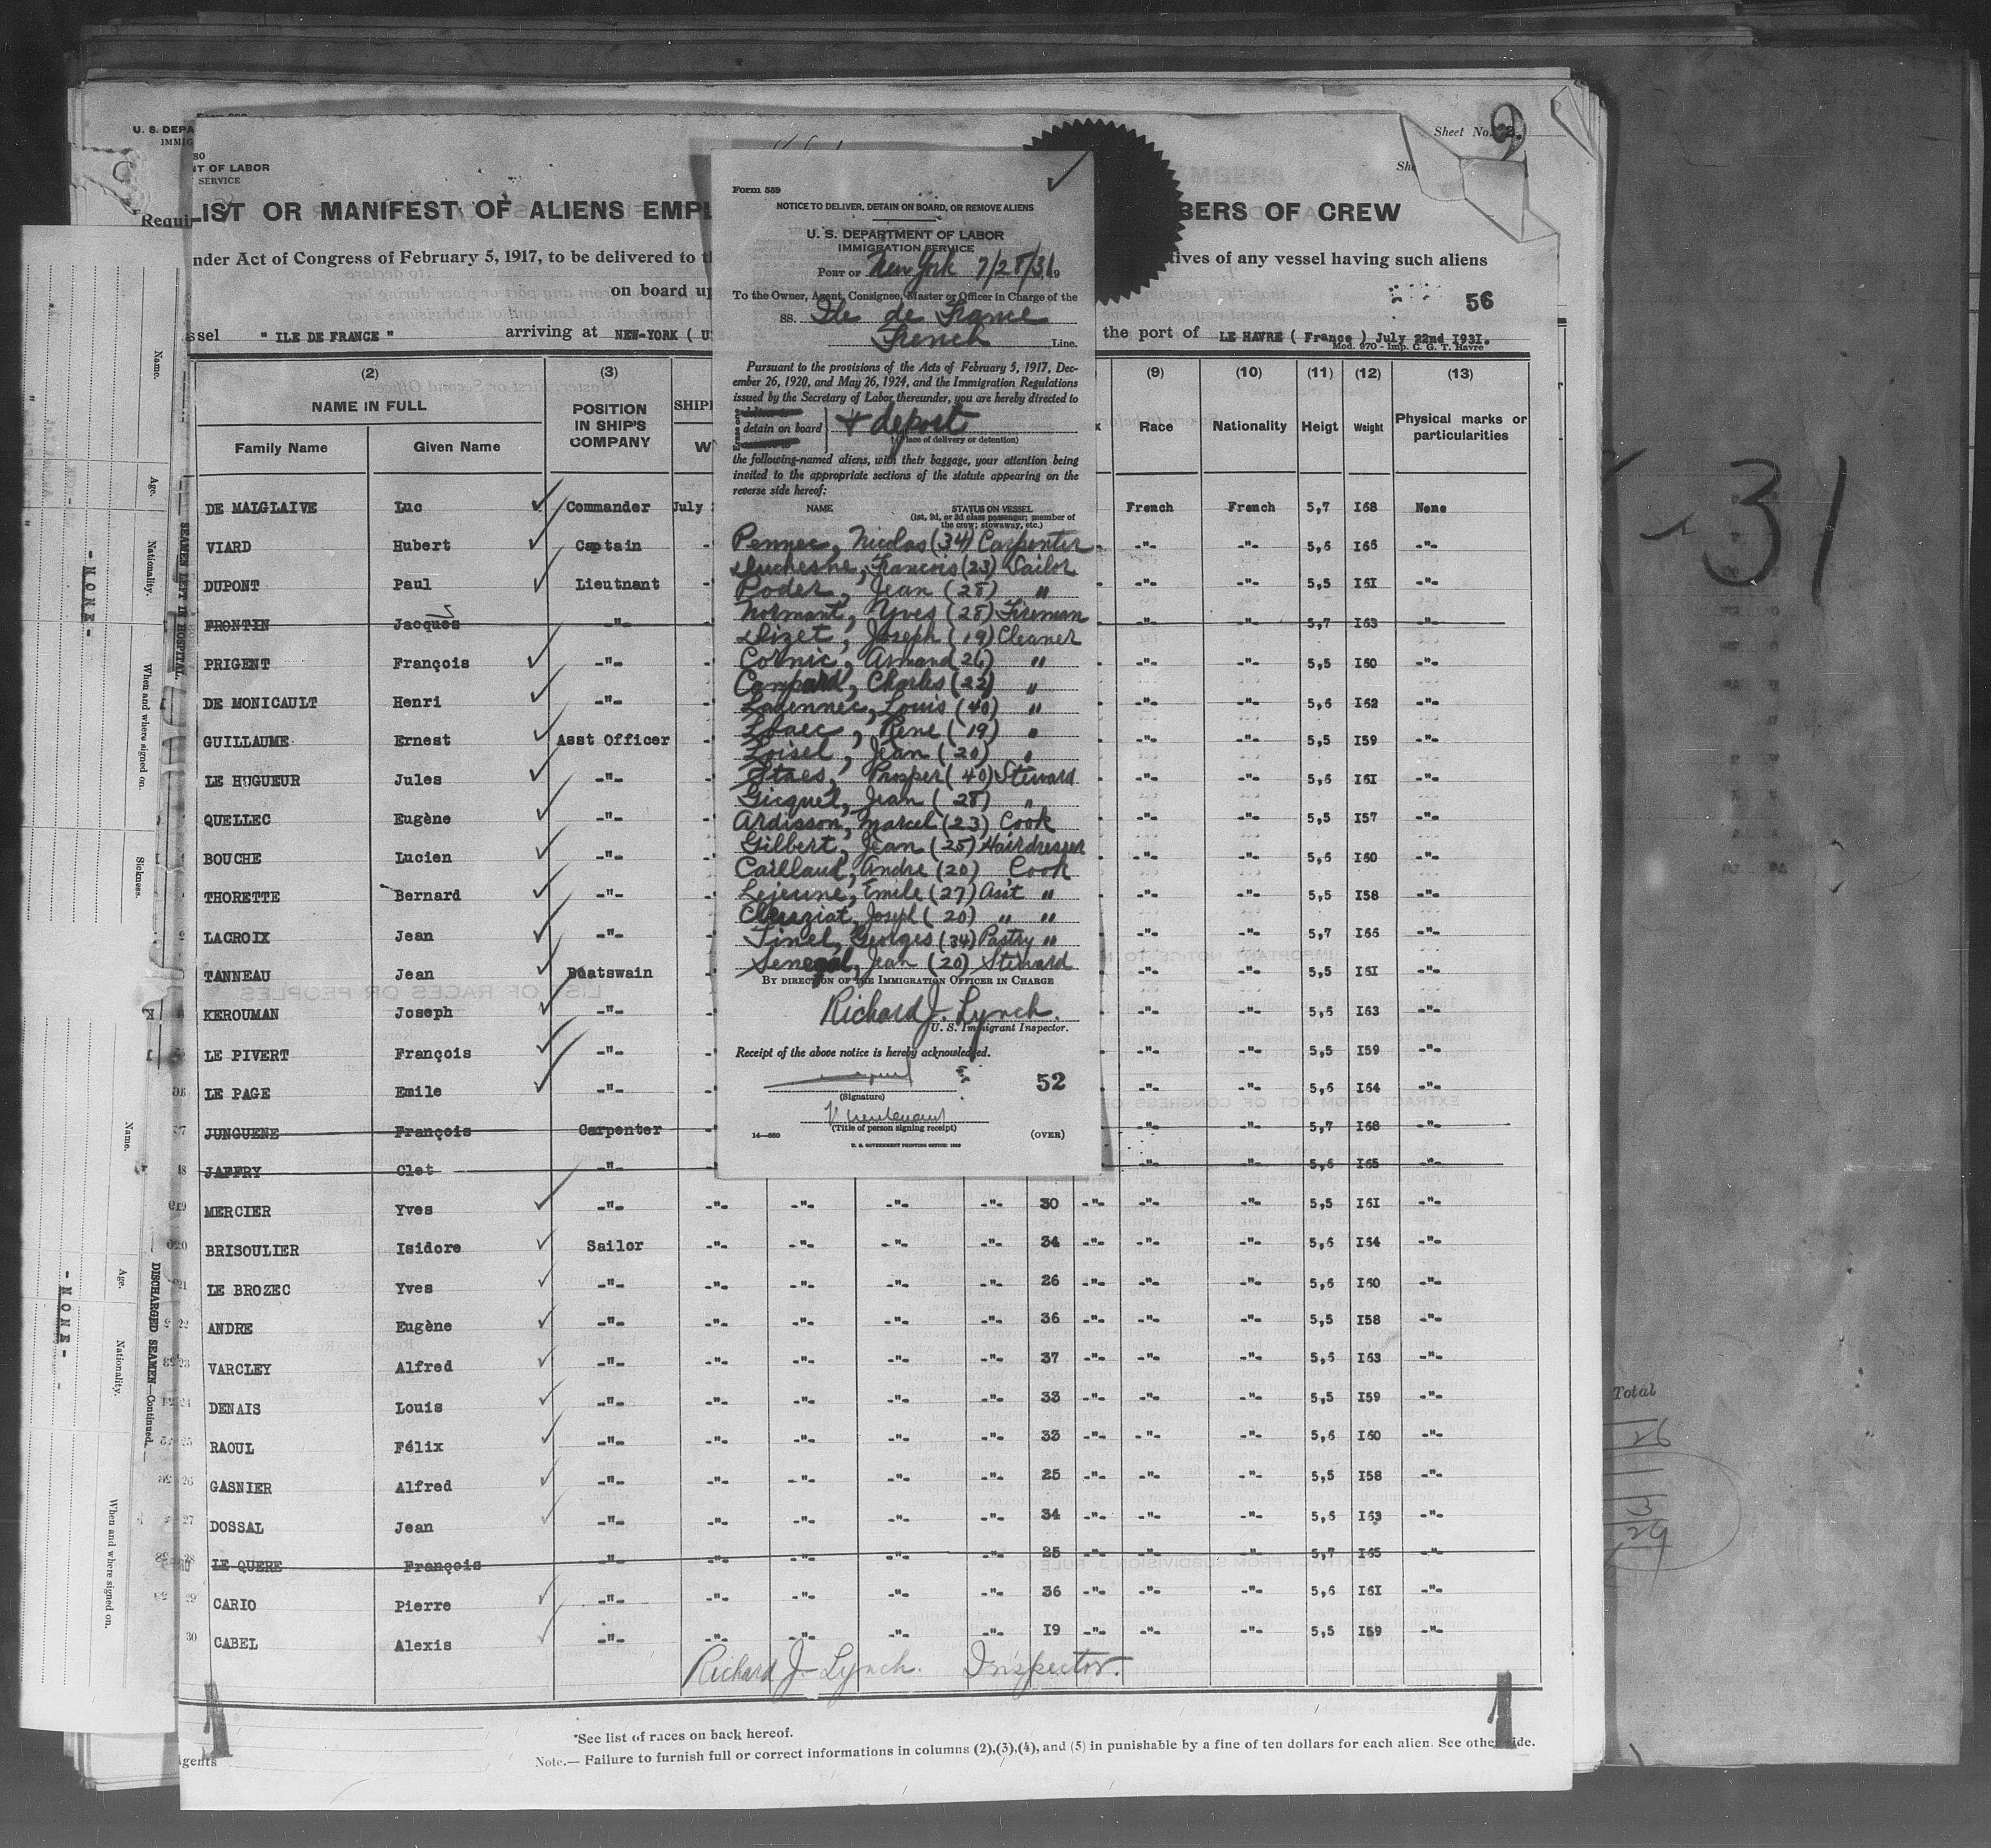 Sheet No. 2.
9
U. S. DEPA
IMMIG
80
NT OF LABOR
SERVICE
Requi
LIST OR MANIFEST OF ALIENS EMPL
BERS OF CREW
nder Act of Congress of February 5, 1917, to be delivered to t
tives of any vessel having such aliens
on board up
56
ssel " ILE DE FRANCE " arriving at NEW-YORK ( U
the port of LE HAVRE ( France ) July 22nd 1931.
Mod. 970 - Imp. C. G. T. Havre
(2) (3) (9) (10) (11) (12) (13)
NAME IN FULL POSITION IN SHIP'S COMPANY SHIP Race Nationality Heigt Weight Physical marks or particularities
Family Name Given Name W
DE MALGLAIVE Luc Commander July French French 5,7 I68 None
VIARD Hubert Captain -"- -"- 5,6 I66 -"-
DUPONT Paul Lieutnant -"- -"- 5,5 I6I -"-
FRONTIN Jacques -"- -"- -"- 5,7 I63 -"-
PRIGENT François -"- -"- -"- 5,5 I60 -"-
DE MONICAULT Henri -"- -"- -"- 5,6 I62 -"-
GUILLAUME Ernest Asst Officer -"- -"- 5,5 I59 -"-
LE HUGUEUR Jules -"- -"- -"- 5,6 I6I -"-
QUELLEC Eugène -"- -"- -"- 5,5 I57 -"-
BOUCHE Lucien -"- -"- -"- 5,6 I60 -"-
THORETTE Bernard -"- -"- -"- 5,5 I58 -"-
LACROIX Jean -"- -"- -"- 5,7 I66 -"-
TANNEAU Jean Boatswain -"- -"- 5,5 I6I -"-
KEROUMAN Joseph -"- -"- -"- 5,6 I63 -"-
LE PIVERT François -"- -"- -"- 5,5 I59 -"-
LE PAGE Emile -"- -"- -"- 5,6 I64 -"-
JUNGUENE François Carpenter -"- -"- 5,7 I68 -"-
JAFFRY Clet -"- -"- -"- 5,6 I65 -"-
MERCIER Yves -"- -"- -"- -"- -"- 30 -"- -"- -"- 5,5 I6I -"-
BRISOULIER Isidore Sailor -"- -"- -"- -"- 34 -"- -"- -"- 5,6 I64 -"-
LE BROZEC Yves -"- -"- -"- -"- -"- 26 -"- -"- -"- 5,6 I60 -"-
ANDRE Eugène -"- -"- -"- -"- -"- 36 -"- -"- -"- 5,5 I58 -"-
VARCLEY Alfred -"- -"- -"- -"- -"- 37 -"- -"- -"- 5,6 I63 -"-
DENAIS Louis -"- -"- -"- -"- -"- 33 -"- -"- -"- 5,5 I59 -"-
RAOUL Félix -"- -"- -"- -"- -"- 33 -"- -"- -"- 5,6 I60 -"-
GASNIER Alfred -"- -"- -"- -"- -"- 25 -"- -"- -"- 5,5 I58 -"-
DOSSAL Jean -"- -"- -"- -"- -"- 34 -"- -"- -"- 5,6 I63 -"-
LE QUERE François -"- -"- -"- -"- -"- 25 -"- -"- -"- 5,7 I65 -"-
CARIO Pierre -"- -"- -"- -"- -"- 36 -"- -"- -"- 5,6 I6I -"-
30 CABEL Alexis -"- -"- -"- -"- -"- I9 -"- -"- -"- 5,5 I59 -"-
Richard J. Lynch. Inspector.
*See list of races on back hereof.
Note.— Failure to furnish full or correct informations in columns (2),(3),(4), and (5) in punishable by a fine of ten dollars for each alien. See other side.
Agents
Form 559
NOTICE TO DELIVER, DETAIN ON BOARD, OR REMOVE ALIENS
U. S. DEPARTMENT OF LABOR
IMMIGRATION SERVICE
PORT OF New York 7/28/31
To the Owner, Agent, Consignee, Master or Officer in Charge of the
SS. Ile de France
French Line.
Pursuant to the provisions of the Acts of February 5, 1917, Dec-
ember 26, 1920, and May 26, 1924, and the Immigration Regulations
issued by the Secretary of Labor thereunder, you are hereby directed to
detain on board + deport
(Place of delivery or detention)
the following-named aliens, with their baggage, your attention being
invited to the appropriate sections of the statute appearing on the
reverse side hereof:
NAME STATUS ON VESSEL
(1st, 2d, or 3d class passenger; member of
the crew; stowaway, etc.)
Pennec, Nicolas (34) Carpenter
Duchesne, Francois (23) Sailor
Poder, Jean (28) "
Normant, Yves (28) Fireman
Dizet, Joseph (19) Cleaner
Cornic, Armand (26) "
Campard, Charles (22) "
Lagennec, Louis (40) "
Loaec, Rene (19) "
Loisel, Jean (20) "
Staes, Prosper (40) Steward
Gicquel, Jean (28) "
Ardisson, Marcel (23) Cook
Gilbert, Jean (25) Hairdresser
Caillaud, Andre (20) Cook
Lejeune, Emile (27) Asst "
Joseph (20) " "
Tinel, Georges (34) Pastry "
Senegal, Jean (20) Steward
BY DIRECTION OF THE IMMIGRATION OFFICER IN CHARGE
Richard J. Lynch.
U. S. Immigrant Inspector.
Receipt of the above notice is hereby acknowledged.
52
(Signature)
(Title of person signing receipt)
14—660
U. S. GOVERNMENT PRINTING OFFICE: 1929
(OVER)
Name.
Age.
Nationality.
When and where signed on.
Sickness.
- NONE -
SEAMEN LEFT IN HOSPITAL
Name.
Age.
Nationality.
When and where signed on.
- NONE -
DISCHARGED SEAMEN—Continued.
31
Total